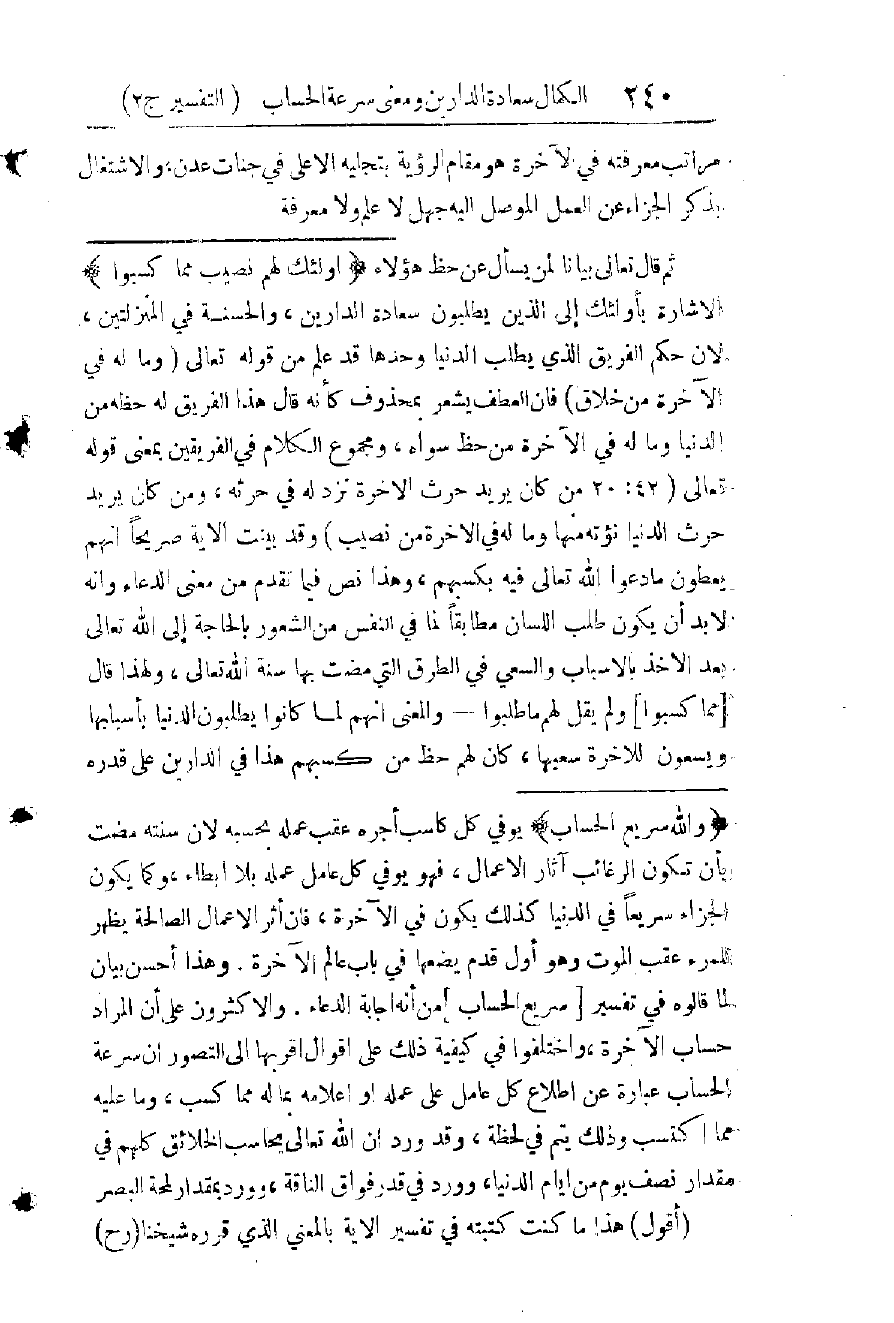 ٢٤٠ الكمال سعادة الدارين ومعنى سرعة الحساب ( التفسير ج ٢ )
مراتب معرفته في الآخرة هو مقام الرؤية بتجليه الاعلى في جنات عدن، والاشتغال
بذكر الجزاء عن العمل الموصل اليه جهل لا علم ولا معرفة
ثم قال تعالى بيانا لمن يسأل عن حظ هؤلاء ﴿ اولئك لهم نصيب مما كسبوا ﴾
الاشارة بأولئك إلى الذين يطلبون سعادة الدارين ، والحسنة في المنزلتين ،
لان حكم الفريق الذي يطلب الدنيا وحدها قد علم من قوله تعالى ( وما له في
الآخرة من خلاق ) فان العطف يشعر بمحذوف كأنه قال هذا الفريق له حظه من
الدنيا وما له في الآخرة من حظ سواه ، ومجموع الكلام في الفريقين بمعنى قوله
تعالى ( ٤٢ : ٢٠ من كان يريد حرث الاخرة نزد له في حرثه ، ومن كان يريد
حرث الدنيا نؤته منها وما له في الاخرة من نصيب ) وقد بينت الاية صريحاً انهم
يعطون مادعوا الله تعالى فيه بكسبهم ، وهذا نص فيما تقدم من معنى الدعاء وانه
لابد أن يكون طلب اللسان مطابقاً لما في النفس من الشعور بالحاجة إلى الله تعالى
بعد الاخذ بالاسباب والسعي في الطرق التي مضت بها سنة الله تعالى ، ولهذا قال
[مما كسبوا] ولم يقل لهم ماطلبوا — والمعنى انهم لما كانوا يطلبون الدنيا بأسبابها
ويسعون للاخرة سعيها ، كان لهم حظ من كسبهم هذا في الدارين على قدره
﴿ والله سريع الحساب ﴾ يوفي كل كاسب أجره عقب عمله بحسبه لان سنته مضت
بأن تكون الرغائب آثار الاعمال ، فهو يوفي كل عامل عمله بلا ابطاء ، وكما يكون
الجزاء سريعاً في الدنيا كذلك يكون في الآخرة ، فان أثر الاعمال الصالحة يظهر
للمرء عقب الموت وهو أول قدم يضعها في باب عالم الآخرة . وهذا أحسن بيان
لما قالوه في تفسير [ سريع الحساب ] من أنه اجابة الدعاء . والاكثرون على أن المراد
حساب الآخرة ، واختلفوا في كيفية ذلك على اقوال اقربها الى التصور ان سرعة
الحساب عبارة عن اطلاع كل عامل على عمله او اعلامه بما له مما كسب ، وما عليه
مما اكتسب وذلك يتم في لحظة ، وقد ورد ان الله تعالى يحاسب الخلائق كلهم في
مقدار نصف يوم من ايام الدنيا، وورد في قدر فواق الناقة ، وورد بمقدار لمحة البصر
(أقول) هذا ما كنت كتبته في تفسير الاية بالمعني الذي قرره شيخنا (رح)